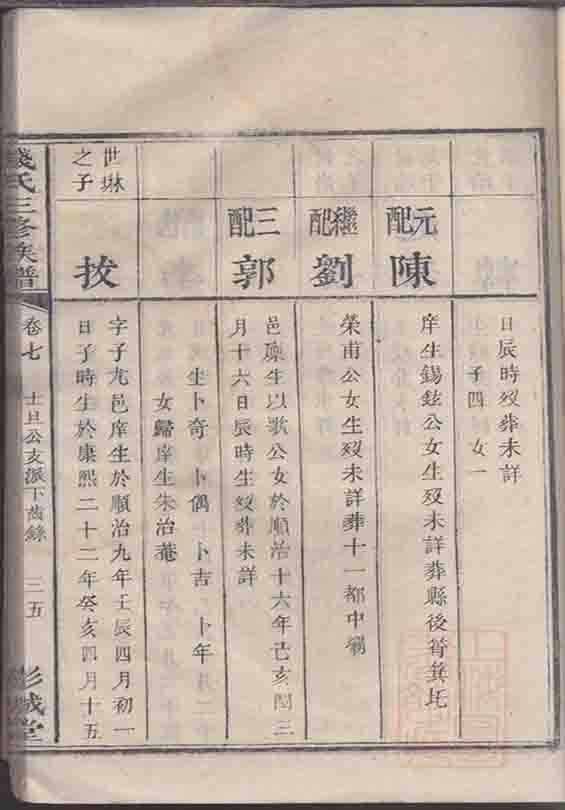 日辰時歿葬未詳
子四女一
元配
陳
庠生錫鉉公女生歿未詳葬縣後筲箕坵
繼配
劉
榮甫公女生歿未詳葬十一都中洲
三配
郭
邑廩生以歌公女於順治十六年己亥閏三
月十六日辰時生歿葬未詳
生卜奇 卜偶 卜吉 卜年
女歸庠生朱治菴
世琳
之子
拔
字子尤邑庠生於順治九年壬辰四月初一
日子時生於康熙二十二年癸亥四月十五
錢氏三修族譜
卷七
士旦公亥派下齒錄
三五
彭城堂